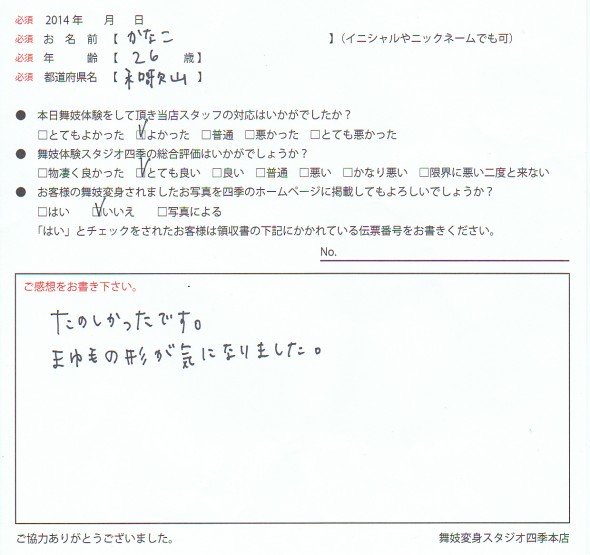 必須 2014年 月 日
必須 お名前【 かなこ 】（イニシャルやニックネームでも可）
必須 年齢【 26 歳】
必須 都道府県名【 和歌山
● 本日舞妓体験をして頂き当店スタッフの対応はいかがでしたか？
□とてもよかった ☑よかった □普通 □悪かった □とても悪かった
● 舞妓体験スタジオ四季の総合評価はいかがでしょうか？
□物凄く良かった ☑とても良い □良い □普通 □悪い □かなり悪い □限界に悪い二度と来ない
● お客様の舞妓変身されましたお写真を四季のホームページに掲載してもよろしいでしょうか？
□はい ☑いいえ □写真による
「はい」とチェックをされたお客様は領収書の下記にかかれている伝票番号をお書きください。
No.
ご感想をお書き下さい。
たのしかったです。
まゆもの形が気になりました。
ご協力ありがとうございました。 舞妓変身スタジオ四季本店